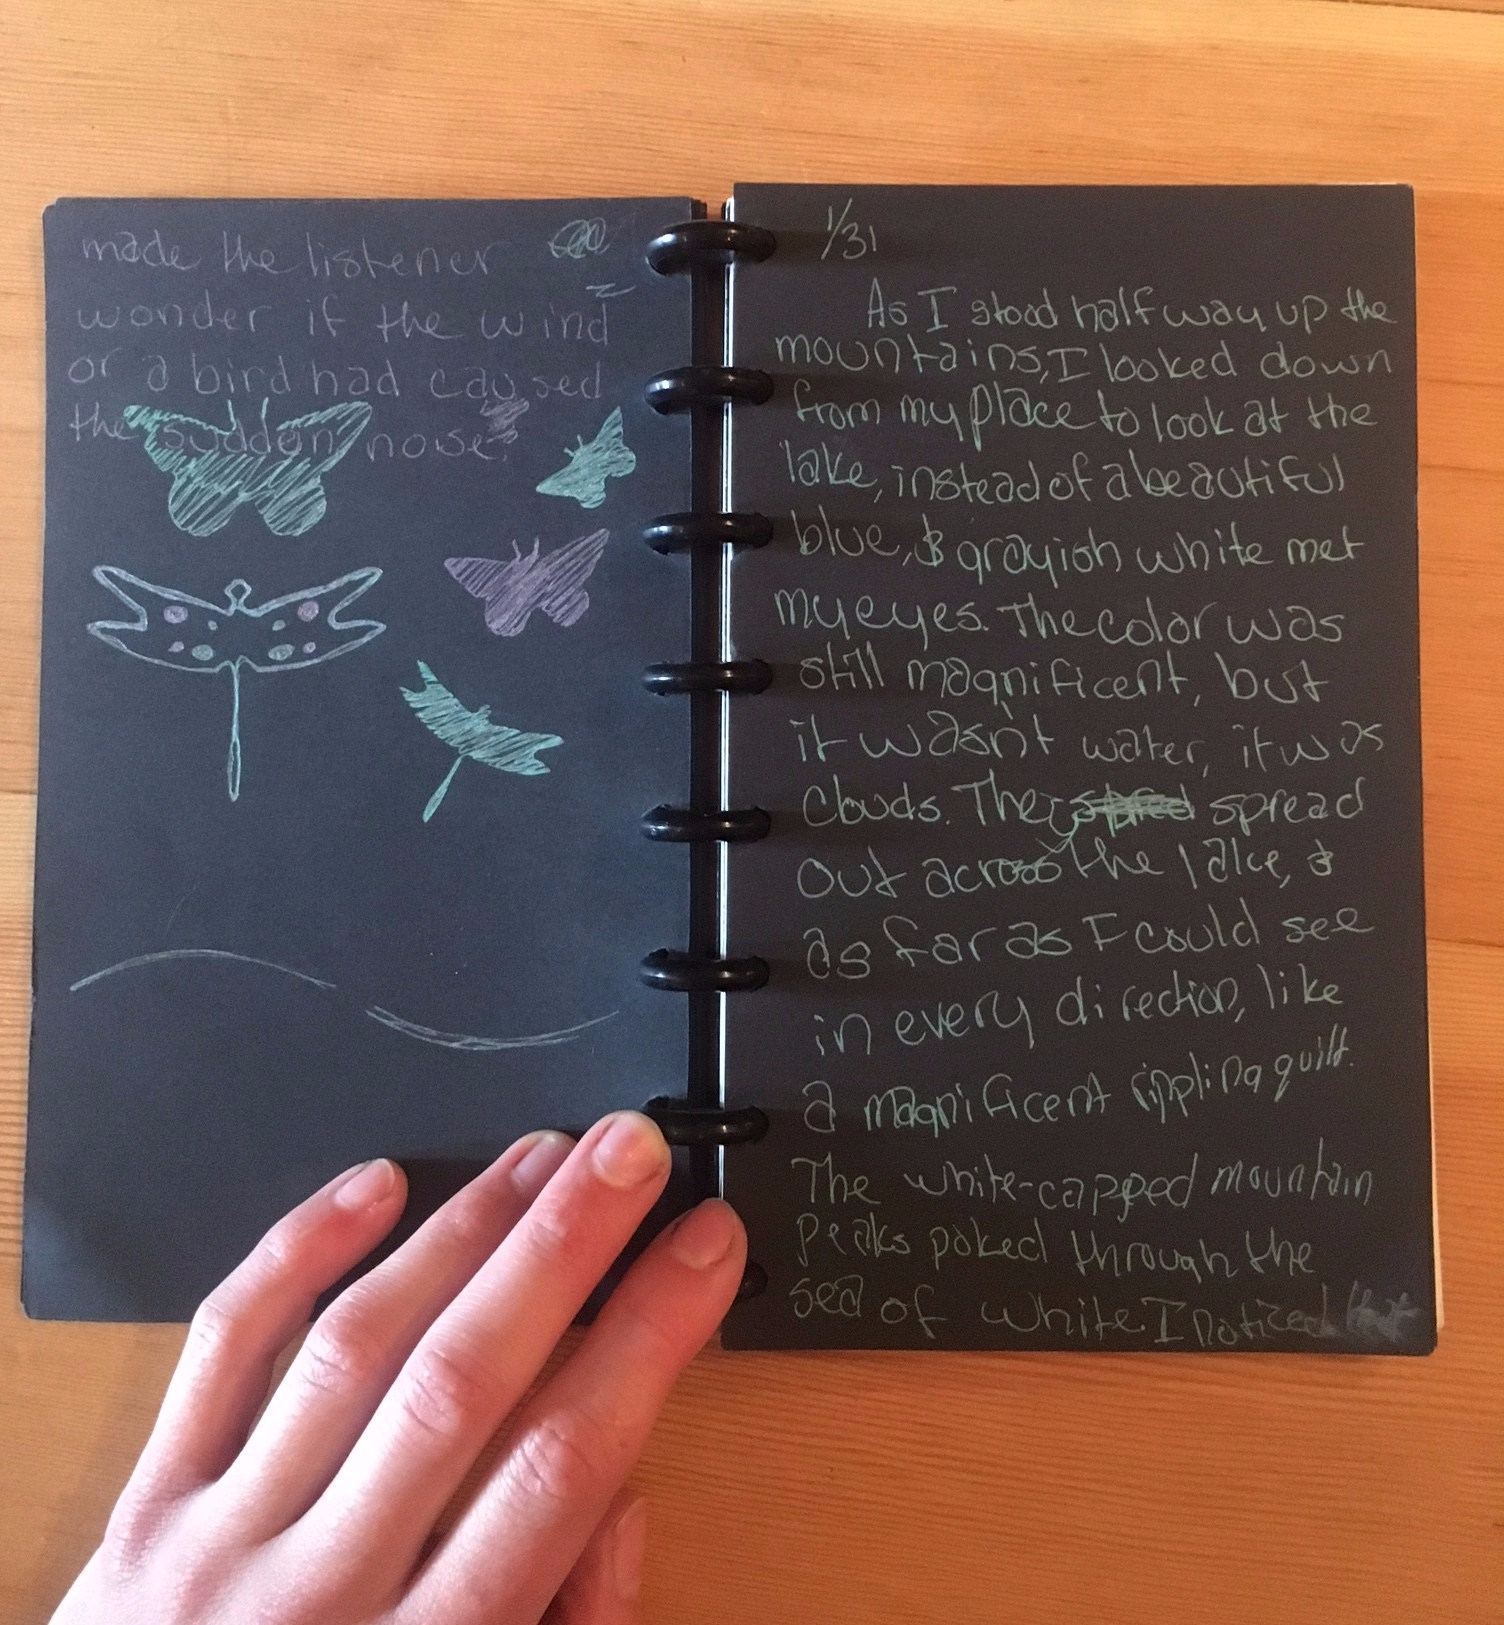 made the listener
wonder if the wind
or a bird had caused
the sudden noise.
1/31
As I stood half way up the
mountains, I looked down
from my place to look at the
lake, instead of a beautiful
blue, & grayish white met
my eyes. The color was
still magnificent, but
it wasn't water, it was
clouds. They spread
out across the lake, &
as far as I could see
in every direction, like
a magnificent rippling quilt.
The white-capped mountain
peaks poked through the
sea of white. I noticed that